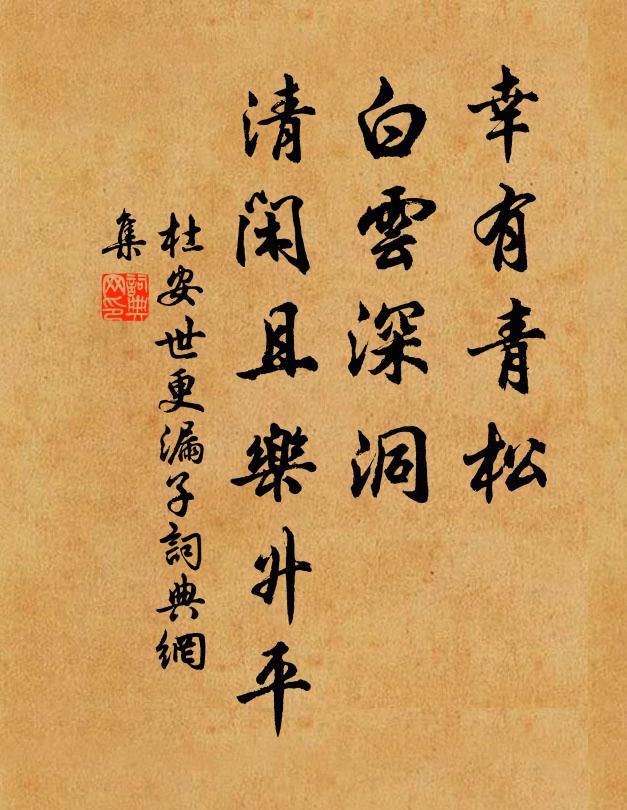 幸有青松
白雲深洞
清閑且樂升平
杜安世更漏子詞典網
集
詞典
网印